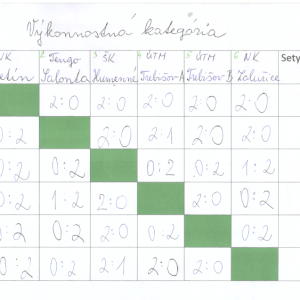 Výkonnostná kategória
VK 2 Tengo 3 ŠK 4 ÚTM 5 ÚTM 6 NK Sety
etín Salonta Humenné Trebišov A Trebišov B Zalužice
2:0 2:0 2:0 2:0 2:0
0:2 2:0 2:1 2:0 2:0
0:2 0:2 0:2 0:2 1:2
0:2 1:2 2:0 2:0 0:2
0:2 0:2 2:0 0:2 2:0
0:2 0:2 2:1 2:0 0:2